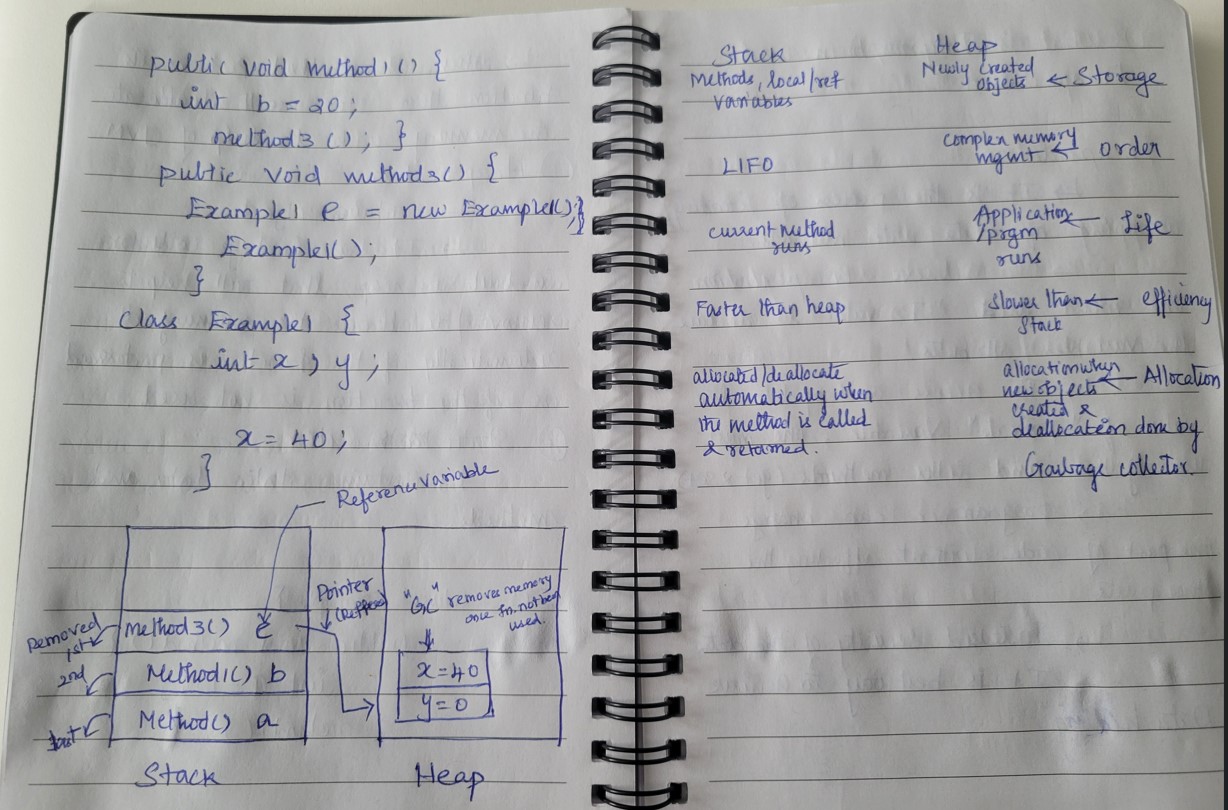 public void method1() {
int b = 20;
method3(); }
public void method3() {
Example1 e = new Example1();}
Example1();
}
class Example1 {
int x, y;
x = 40;
}
Reference variable
Pointer
"GC" removes memory
once fn. not been
used.
Removed
1st
method3() e
2nd
Method1() b
x=40
last
Method() a
y=0
Stack
Heap
Stack
Heap
Methods, local/ref
variables
Newly Created
objects ← Storage
LIFO
complex memory
mgmt ← order
current method
runs
Application ← Life
/prgm
runs
Faster than heap
slower than ← efficiency
stack
allocated/deallocate
automatically when
the method is called
& retarned.
allocation when
new objects ← Allocation
created &
deallocation done by
Garbage collector.